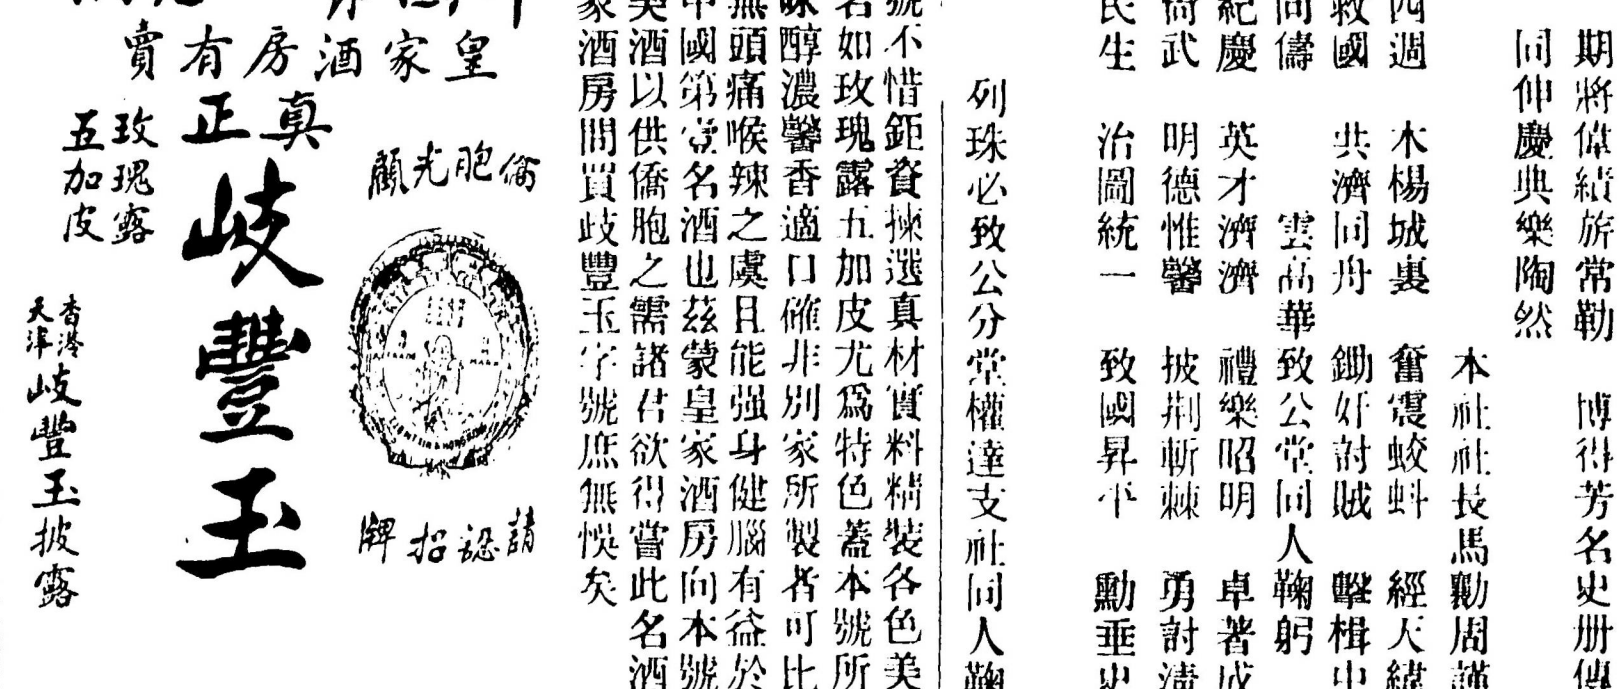 期將偉績旂常勒 博得芳名史册傳
同伸慶典樂陶然
本社社長馬勷周謹
四週 木楊城裏 奮震蛟蚪 經天緯
救國 共濟同舟 鋤奸討賊 擊楫中
同儔 雲高華致公堂同人鞠躬
紀慶 英才濟濟 禮樂昭明 卓著成
尚武 明德惟馨 披荆斬棘 勇討淸
民生 治圖統一 致國昇平 勳垂史
列珠必致公分堂權達支社同人鞠
號不惜鉅資揀選真材實料精裝各色美
名如玫瑰露五加皮尤爲特色蓋本號所
味醇濃馨香適口確非別家所製者可比
無頭痛喉辣之虞且能强身健腦有益於
中國第壹名酒也茲蒙皇家酒房向本號
美酒以供僑胞之需諸君欲得嘗此名酒
家酒房問買歧豐玉字號庶無悞矣
僑胞光顧
請認招牌
皇家酒房有賣
真正
岐豐玉
玫瑰露
五加皮
香港
天津
岐豐玉披露